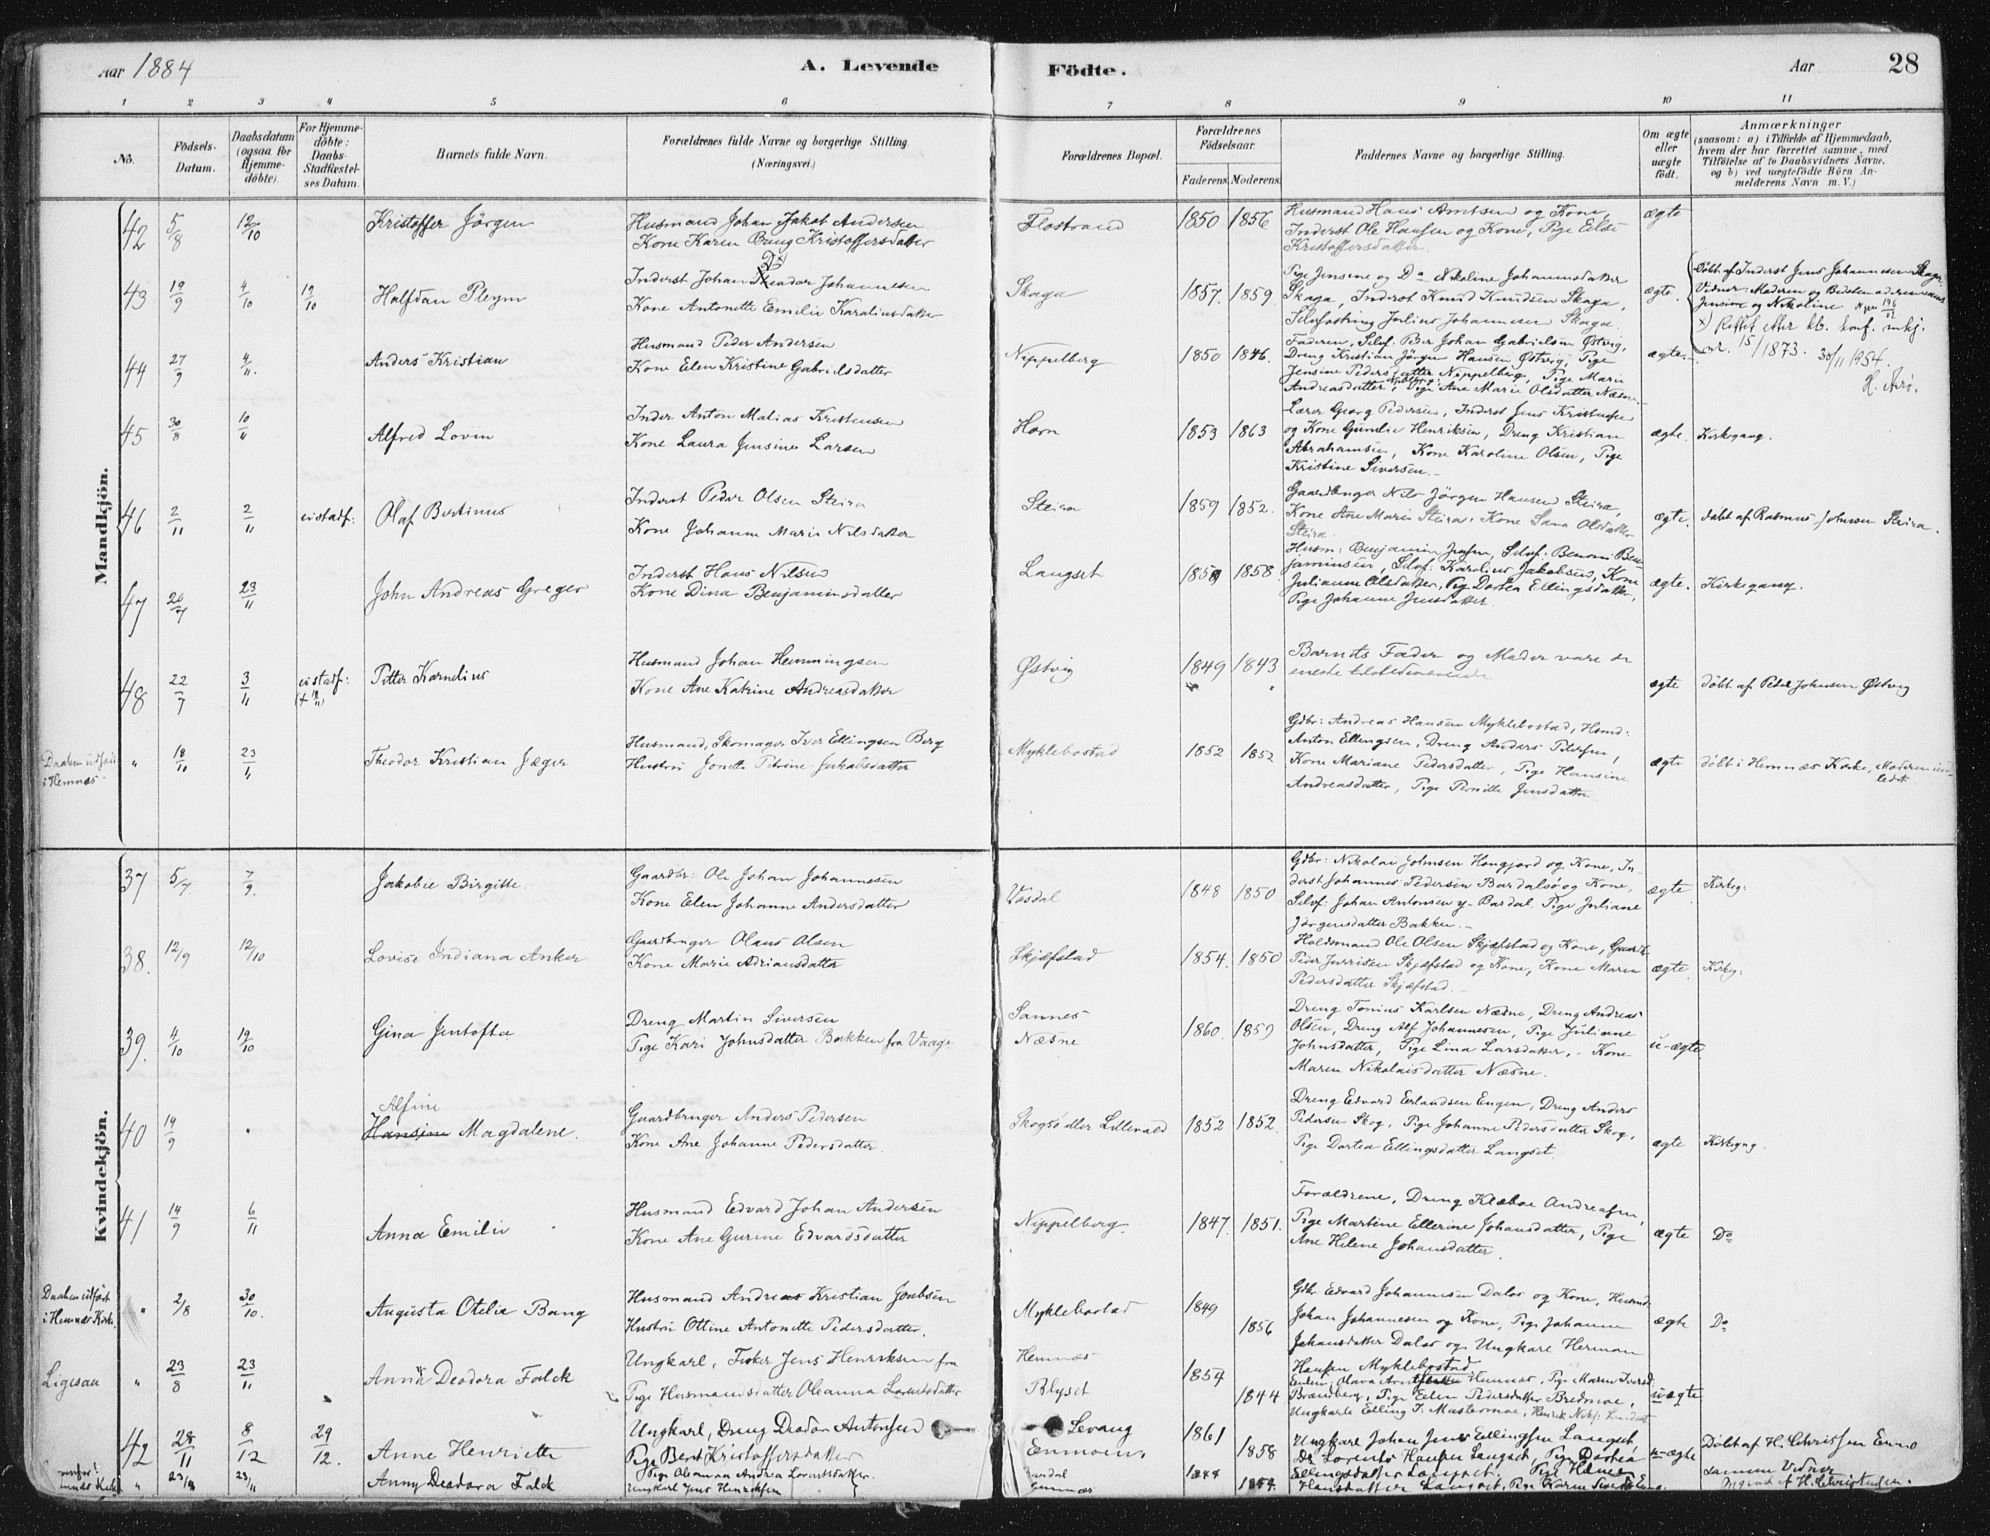 Aar 1884 A. Levende Födte. Aar 28
1 2 3 4 5 6 7 8 9 10 11
No. Födsels-Datum. Daabsdatum (ogsaa for Hjemme-döbte). For Hjemme-döbte: Daabs-Stadfæstel-ses Datum. Barnets fulde Navn. Forældrenes fulde Navne og borgerlige Stilling (Næringsvei.) Forældrenes Bopæl. Forældrenes Födselsaar. Faderens Moderens Faddernes Navne og borgerlige Stilling. Om ægte eller uægte födt. Anmærkninger (saasom: a) i Tilfælde af Hjemmedaab, hvem der har forrettet samme, med Tilföielse af to Daabsvidners Navne, og b) ved uægtefödte Börn An-melderens Navn m. V.)
Mandkjön.
42 5/8 12/10 Kristoffer Jörgen Husmand Johan Jakob Andersen Flostrand 1850 1856 Husmand Hans Amtsen og Kone, ægte
Kone Karen Kristoffersdatter Inderst Ole Hansen og Kone, Pige Else
Kristoffersdatter
43 19/9 4/10 19/10 Halfdan Pleym Inderst Johan Teodor Johannesen Skaga 1857. 1859. Pige Jensine og Do Nikoline Johannesdatter ægte. Döbt af Inderst Jens Johannesen Skaga.
Kone Antonette Emilie Karoliusdatter Skaga, Inderst Knud Knudsen Skaga, Vidner: Moderen og
Julius Johannesen Skaga. Jensine og Nikoline
x) Rettet etter kb. konf. mkj.
nr. 15/1873. 30/11 1954.
H. Arö.
44 27/9 4/11. Anders Kristian Husmand Peder Andersen Nippelberg 1850 1846. Faderen, Selof. Peder Johan Gabrielsen Østvig, ægte.
Kone Elen Kristine Gabrielsdatter Dreng Kristian Jörgen Hansen Østvig, Pige
Jensine Pedersdatter Nippelberg, Pige Marie
Andreasdatter, Pige Ane Marie Olsdatter Næsne.
45 30/8 10/11 Alfred Loven Inder Anton Matias Kristensen Horn 1853 1863 Lærer Georg Pedersen, Inderst Jens Kristensen ægte. Kirkegang.
Kone Laura Jensine Larsen og Kone Gunelie Henriksen, Dreng Kristian
Abrahamsen, Kone Karoline Olsen, Pige
Kristine Siversen.
46 2/11 2/11 eistadf: Olaf Bertinus Inderst Peder Olsen Steira Steira 1859 1852. Gaardbruger Nils Jörgen Hansen Steira, ægte. döbt af Rasmus Johnsen Steira.
Kone Johanne Marie Nilsdatter Kone Ane Marie Steira, Kone Sara Olsdatter
Steira
47 26/7 23/11 John Andreas Greger Inderst Hans Nilsen Langset 1859 1858. Husm: Benjamin Jensen, Selof: Benoni Ben- ægte. Kirkegang.
Kone Dina Benjaminsdatter jaminsen, Selof: Karelius Jakobsen, Kone
Julianne Olsdatter, Pige Dortea Ellingsdatter,
Pige Johanne Jensdatter.
48 22/7 3/11 eistadf: Petter Kornelius Husmand Johan Hemmingsen Østvig 1849 1843 Barnets Fader og Moder vare de ægte döbt af Peder Johnsen Østvig
Kone Ane Katrine Andreasdatter eneste tilstedeværende
Daaben udført i Hemnæs " 18/10 23/11 Theodor Kristian Jæger Husmand, Skomager Iver Ellingsen Berg Myklebostad 1852 1852 Gdbr: Andreas Hansen Myklebostad, Husmd: ægte döbt i Hemnæs Kirke, Moderen indledet.
Hustru Jonette Petrine Jakobsdatter Anton Ellingsen, Dreng Anders Petersen,
Kone Mariane Pedersdatter, Pige Hansine
Andreasdatter, Pige Pernille Jensdatter
Kvindekjön.
37 5/7. 7/9. Jakobie Birgitte. Gaardbr: Ole Johan Johannesen Vasdal 1848 1850 Gdbr: Nikolai Johnsen Hongjord og Kone, In- ægte Kirkeg:
Kone Elen Johanne Andersdatter derst Johannes Pedersen Bardalsö og Kone,
Selof: Johan Antonsen Bardal. Pige Juliane
Jörgensdatter Bakken.
38. 12/9 12/10 Lovise Indiana Anker Gaardbruger Olaus Olsen Skjæfstad 1854. 1850 Holdsmand Ole Olsen Skjæfstad og Kone, Gaardbr. ægte Kirkeg:
Kone Marie Adriansdatter Peder Skjæfstad og Kone, Kone Maren
Pedersdatter Skjæfstad.
39. 4/10 19/10 Gina Jentofta Dreng Martin Siversen Sannes 1860. 1859 Dreng Tonius Karlsen Næsne, Dreng Andreas u-ægte
Pige Kari Johnsdatter Bakken fra Vaage Næsne Olsen, Dreng Alf Johannesen, Pige Juliane
Johnsdatter, Pige Lina Larsdatter, Kone
Maren Nikolaisdatter Næsne.
40 14/9 Alfine Hansine Magdalene. Gaardbruger Anders Pedersen Skogsö eller Lillevald 1852 1852. Dreng Edvard Erlandsen Engen, Dreng Anders ægte Kirkegng.
Kone Ane Johanne Pedersdatter. Pedersen Skog, Pige Johanne Pedersdatter Skog,
Pige Dortea Ellingsdatter Langset.
41 14/9 6/11 Anna Emilie Husmand Edvard Johan Andersen Nippelberg 1847. 1851. Forældrene, Dreng Klæboe Andreasen, ægte Do
Kone Ane Gurine Edvardsdatter Pige Martine Ellerine Johansdatter, Pige
Ane Helene Johansdatter.
Daaben udført i Hemnæs Kirke " 2/8 30/10. Augusta Otelia Bang Husmand Andreas Kristian Jakobsen Myklebostad 1849 1856 Gdbr Edvard Johannesen Dalos og Kone, Husmd. ægte Do
Hustru Ottine Antonette Pedersdatter. Johan Johannesen og Kone, Pige Johanne
Johansdatter Dalos og Ungkarl Herman
Hansen Myklebostad
Ligesaa " 23/8 23/11 Anna Deodora Falck Ungkarl, Fisker Jens Henriksen fra Hemnæs 1854 1844 Hemnæs, Pige Maren u-ægte
Pige Husmandsdatter Oleanna Lorentsdatter Blyset Pige Elen Pedersdatter Bredmoe,
Ungkarle Elling J. Mastermoe, Henrik
42 28/11 8/12 29/12. Anne Henriette Ungkarl, Dreng Deodor Antonsen Levang 1861 1858 Ungkarl Johan Jens Ellingsen Langset, u-ægte Döbt af H. Christsen
Pige Kristoffersdatter Do Lorents Hansen Langset, Pige Dortea
" 23/8 23/11 Anny Deodora Falck Pige Oleanna Andrea Lorentsdatter. 1844 Ellingsdatter Langset, samme Vidner
Ungkarl Jens Henriksen Hemnæs 1854 Hansdatter Langset, Pige